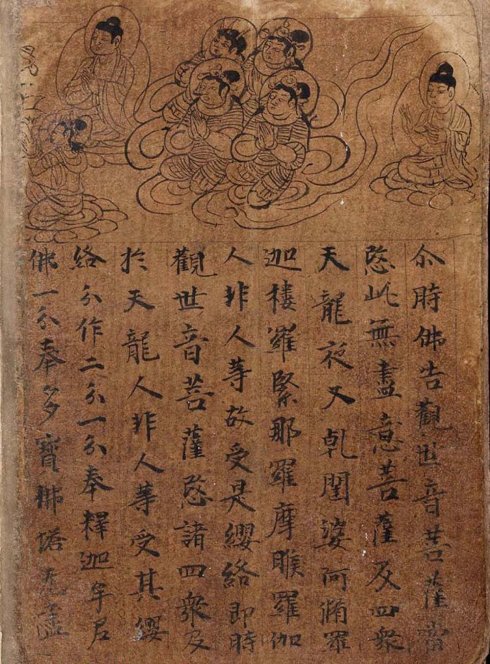 尒時佛告觀世音菩薩當
愍此無盡意菩薩及四衆
天龍夜叉乹闥婆阿脩羅
迦樓羅緊那羅摩睺羅伽
人非人等故受是纓絡即時
觀世音菩薩愍諸四衆及
扵天龍人非人等受其纓
絡分作二分一分奉釋迦牟尼
佛一分奉多寶佛塔无盡